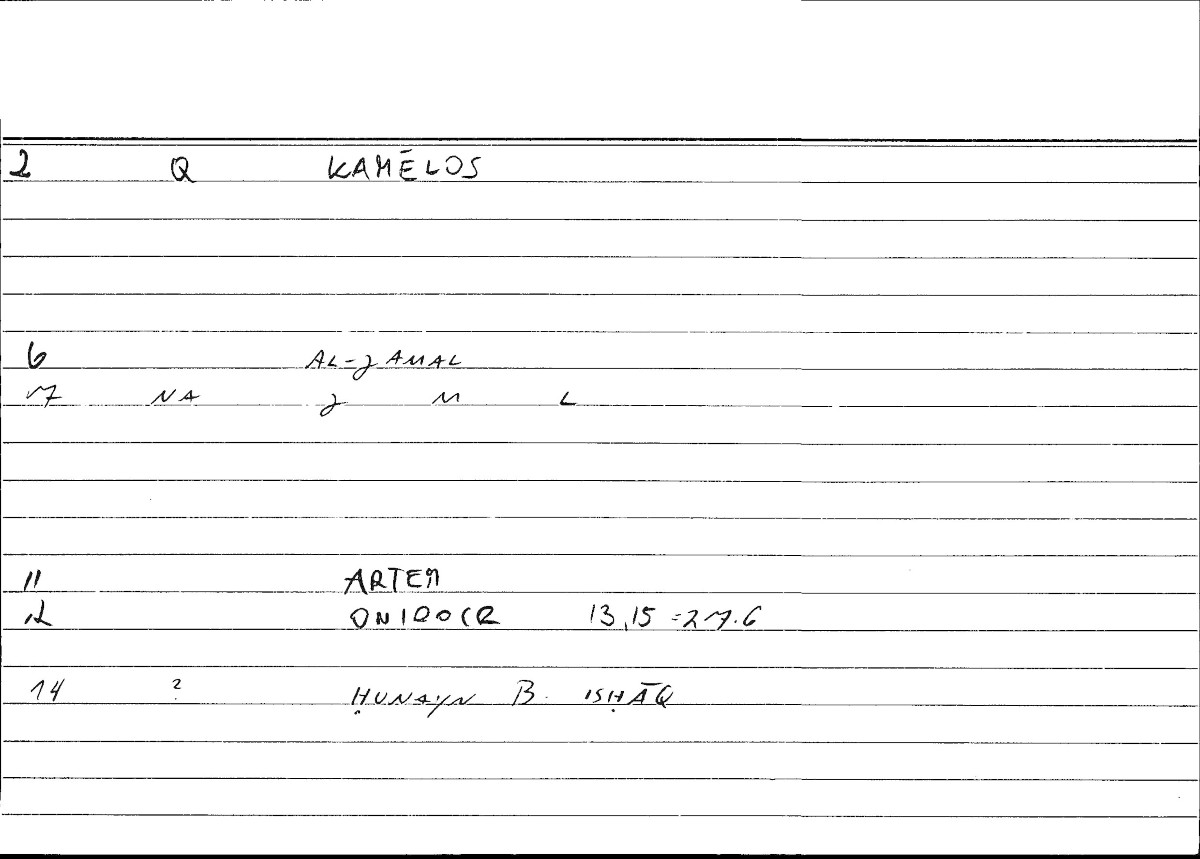 2 Q KAMĒLOS
6 AL-JAMAL
7 NA J M L
11 ARTEM
12 ONIROCR 13,15 = 27.6
14 ? ḤUNAYN B. ISḤĀQ